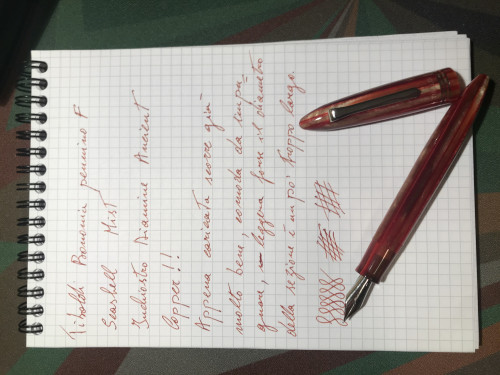 Tibaldi Bononia pennino F
Seashell Mist
Inchiostro Diamine Ancient
Copper!!
Appena caricata scorre già
molto bene, comoda da impu-
gnare, leggera forse il diametro
della sezione è un po' troppo largo.